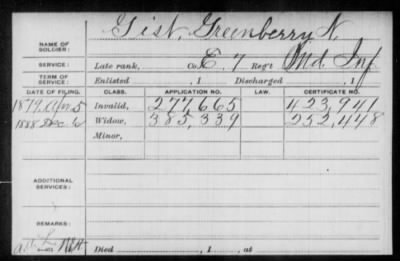 Gist, Greenberry N.
NAME OF SOLDIER:
SERVICE: Late rank, Co. E. 7 Reg't Md. Inf
TERM OF SERVICE: Enlisted , 1 Discharged , 1
DATE OF FILING. CLASS. APPLICATION NO. LAW. CERTIFICATE NO.
1879, Apr. 5 Invalid, 277,665 423,941
1888 Dec 6 Widow, 385,339 252,448
Minor,
ADDITIONAL SERVICES:
REMARKS:
Died , 1 , at